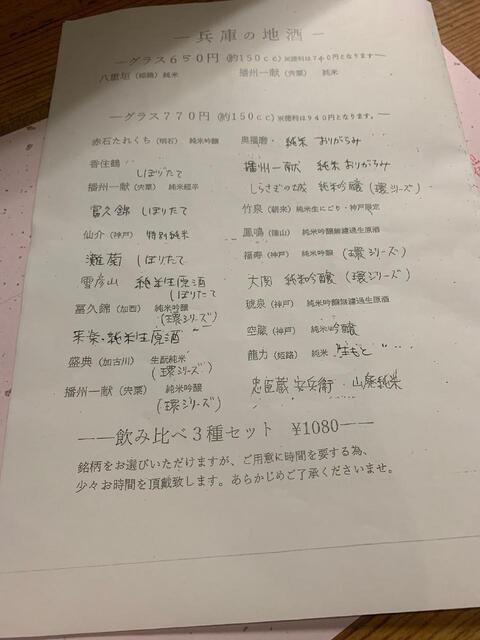 ―兵庫の地酒―
―グラス650円(約150cc)※徳利は740円となります―
八重垣(姫路) 純米 播州一献(宍粟) 純米
―グラス770円(約150cc)※徳利は940円となります。―
赤石たれくち(明石) 純米吟醸 奥播磨・純米 おりがらみ
香住鶴 しぼりたて 播州一献 純米 おりがらみ
播州一献(宍粟) 純米超辛 しらさぎの城 純米吟醸(環シリーズ)
富久錦 しぼりたて 竹泉(朝来) 純米生にごり・神戸限定
仙介(神戸) 特別純米 鳳鳴(篠山) 純米吟醸無濾過生原酒
灘菊 しぼりたて 福寿(神戸) 純米吟醸(環シリーズ)
雪彦山 純米生原酒 しぼりたて 大関 純米吟醸(環シリーズ)
富久錦(加西) 純米吟醸(環シリーズ) 琥泉(神戸) 純米吟醸無濾過生原酒
来楽・純米生原酒 空蔵(神戸) 純米吟醸
盛典(加古川) 生酛純米(環シリーズ) 龍力(姫路) 純米 生もと
播州一献(宍粟) 純米吟醸(環シリーズ) 忠臣蔵 安兵衛・山廃純米
――飲み比べ3種セット ¥1080――
銘柄をお選びいただけますが、ご用意に時間を要する為、
少々お時間を頂戴致します。あらかじめご了承くださいませ。